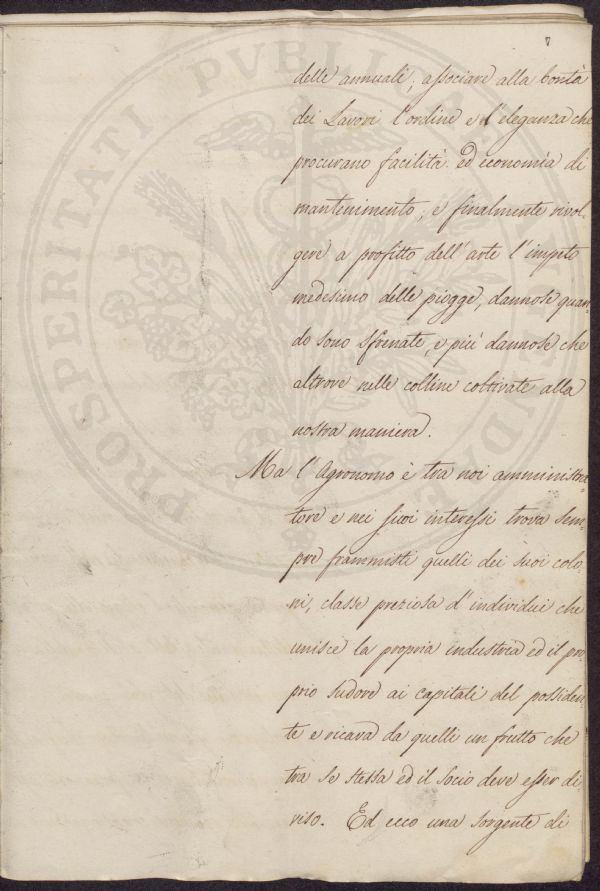 7
delle annuali; associare alla bontà
dei Lavori l'ordine e l'eleganza che
procurano facilità ed economia di
mantenimento; e finalmente rivol-
gere a profitto dell'arte l'impeto
medesimo delle piogge, dannose quan-
do sono sfrenate, e più dannose che
altrove nelle colline coltivate alla
nostra maniera.
Ma l'Agronomo è tra noi amministra-
tore e nei suoi interessi trova sem-
pre frammisti quelli dei suoi colo-
ni, classe preziosa d'individui che
unisce la propria industria ed il pro-
prio sudore ai capitali del possiden-
te e ricava da quelli un frutto che
tra se stessa ed il socio deve esser di-
viso. Ed ecco una sorgente di
PROSPERITATI PUBLICAE AUGENDAE